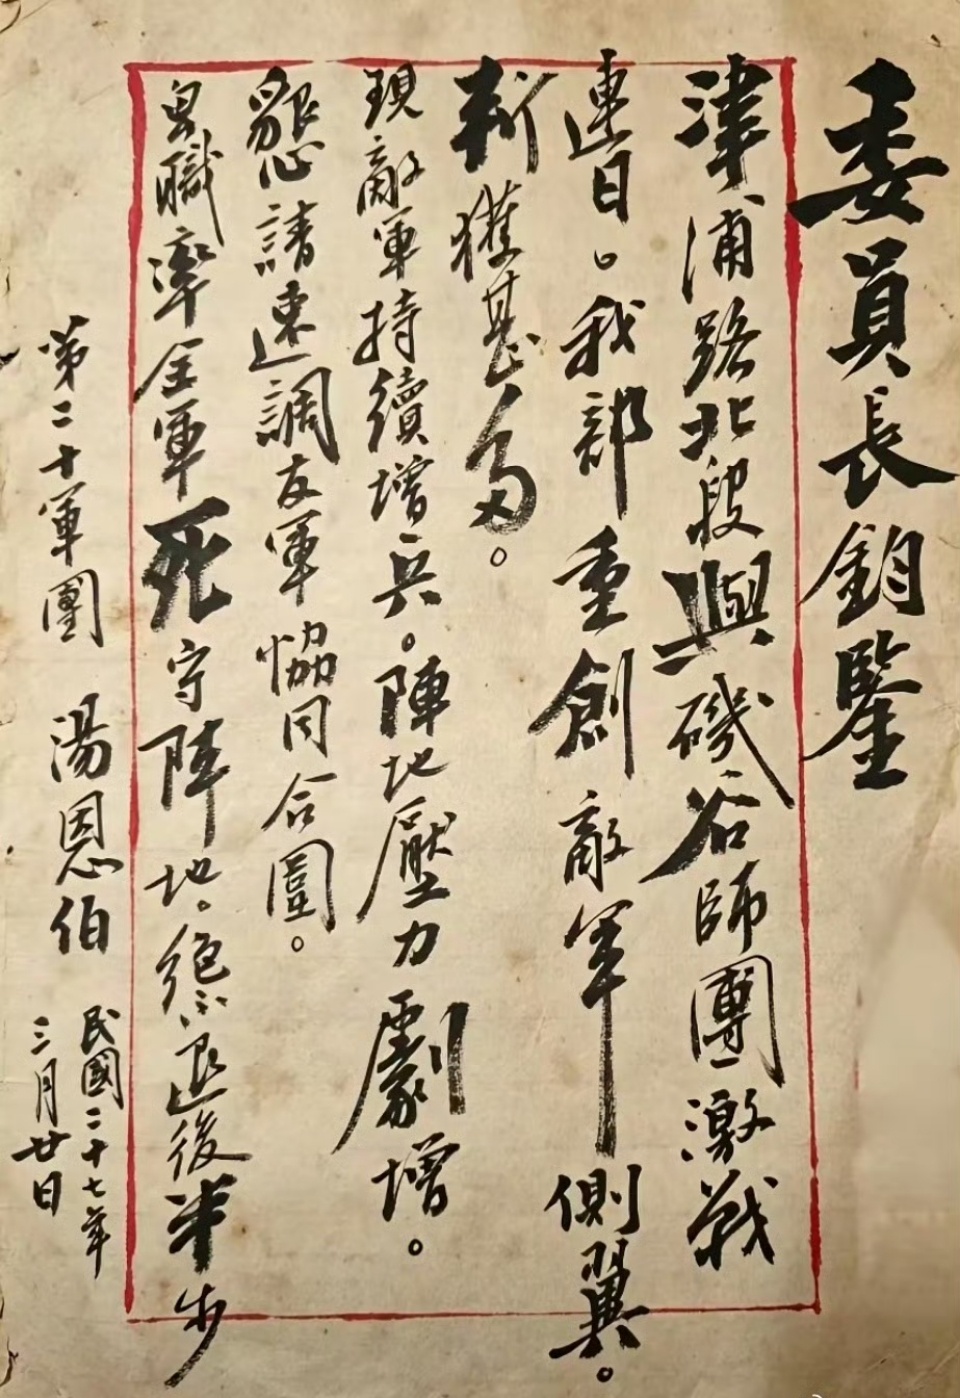 委員長鈞鑒
津浦路北段與磯谷師團激戰
連日。我部重創敵軍側翼。
斬獲甚多。
現敵軍持續增兵。陣地壓力劇增。
懇請速調友軍協同合圍。
卑職率全軍死守陣地。絕不退後半步
第二十軍團 湯恩伯 民國二十七年
三月廿日